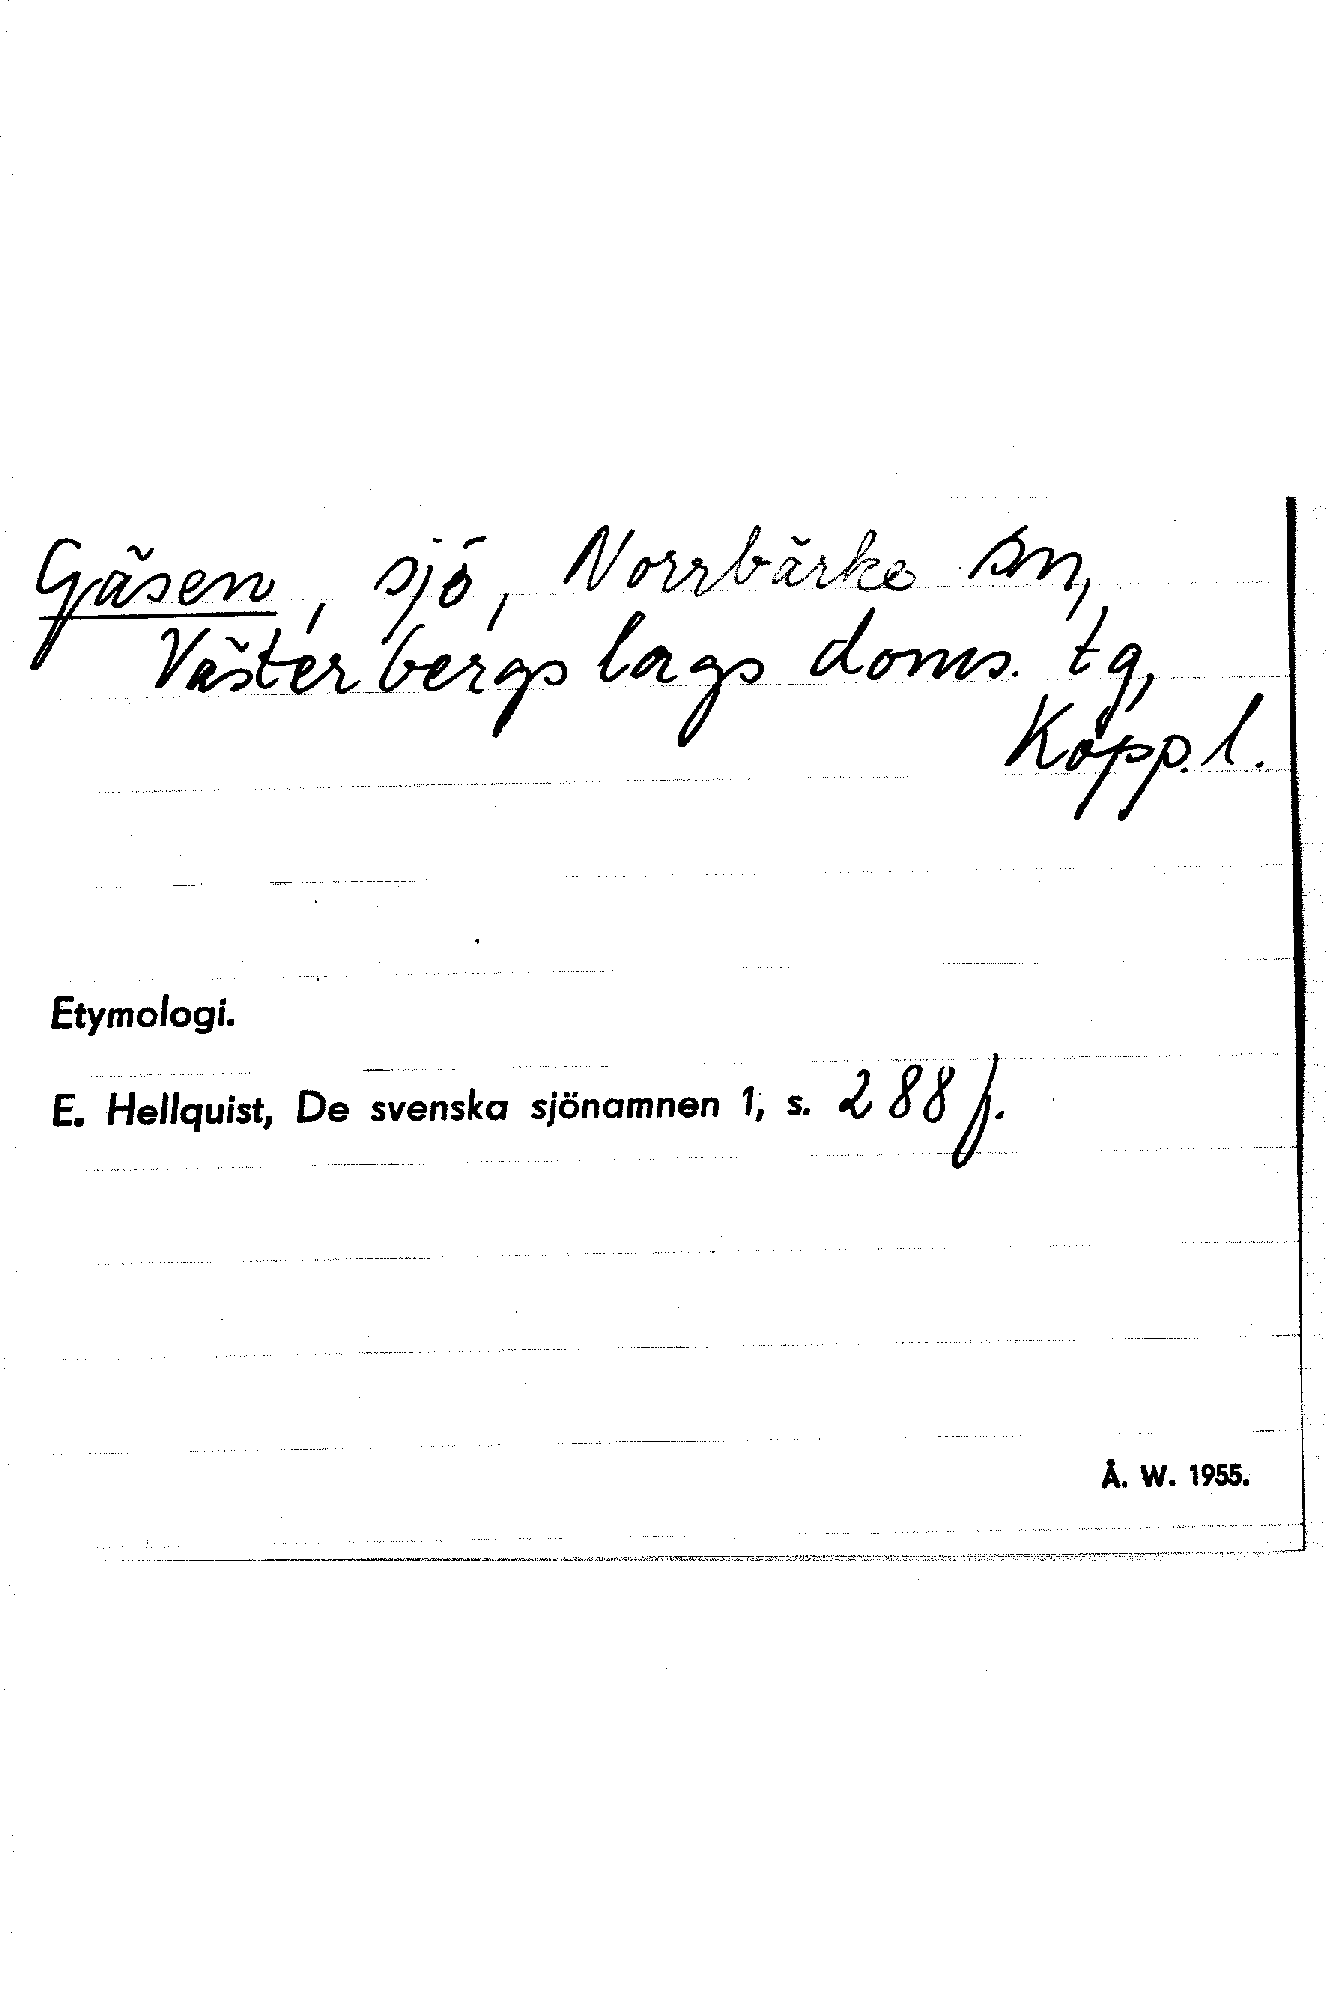 Gäsen, sjö, Norrbärke sn,
Västerbergslags doms. tg,
Kopp. l.
Etymologi.
E. Hellquist, De svenska sjönamnen 1, s. 288 f.
Å. W. 1955.